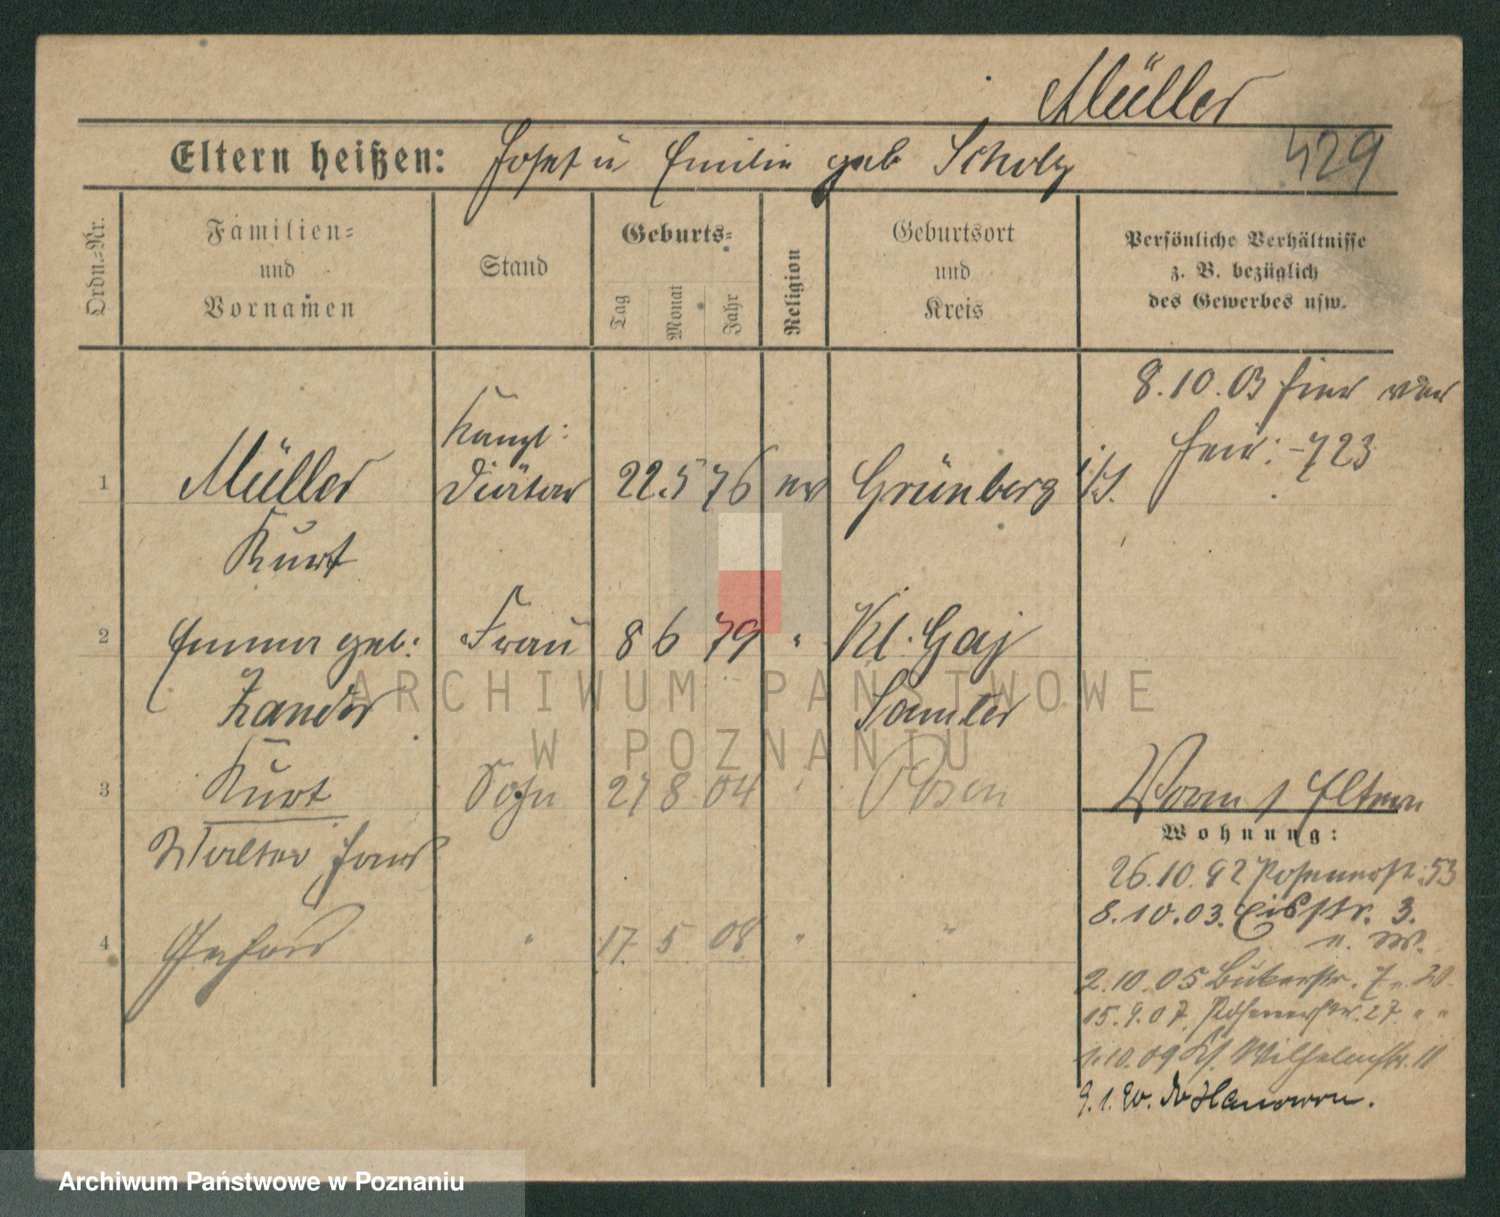 Müller
Eltern heißen: Josef u Emilie geb Scholz
429
Ordn.-Nr.
Familien-
und
Vornamen
Stand
Geburts-
Tag
Monat
Jahr
Religion
Geburtsort
und
Kreis
Persönliche Verhältnisse
z. B. bezüglich
des Gewerbes usw.
8.10.03
723
1 Müller Kanzl: Diätar 22. 5 76 ev Grünberg i/S.
Kurt
2 Emma geb: Frau 8 6 79 " Kl. Gaj
Zander Samter
3 Kurt Sohn 27 8 04 " Posen
Walter, Hans
4 " 17. 5 08 " "
Eltern
Wohnung:
26.10.92 Posenerstr. 53
8.10.03. 3.
2.10.05 Bukerstr. 7
15.9.07. Posenerstr. 27 " "
1.10.09 Wilhelmstr. 11
9.1.20.
ARCHIWUM PAŃSTWOWE
W POZNANIU
Archiwum Państwowe w Poznaniu